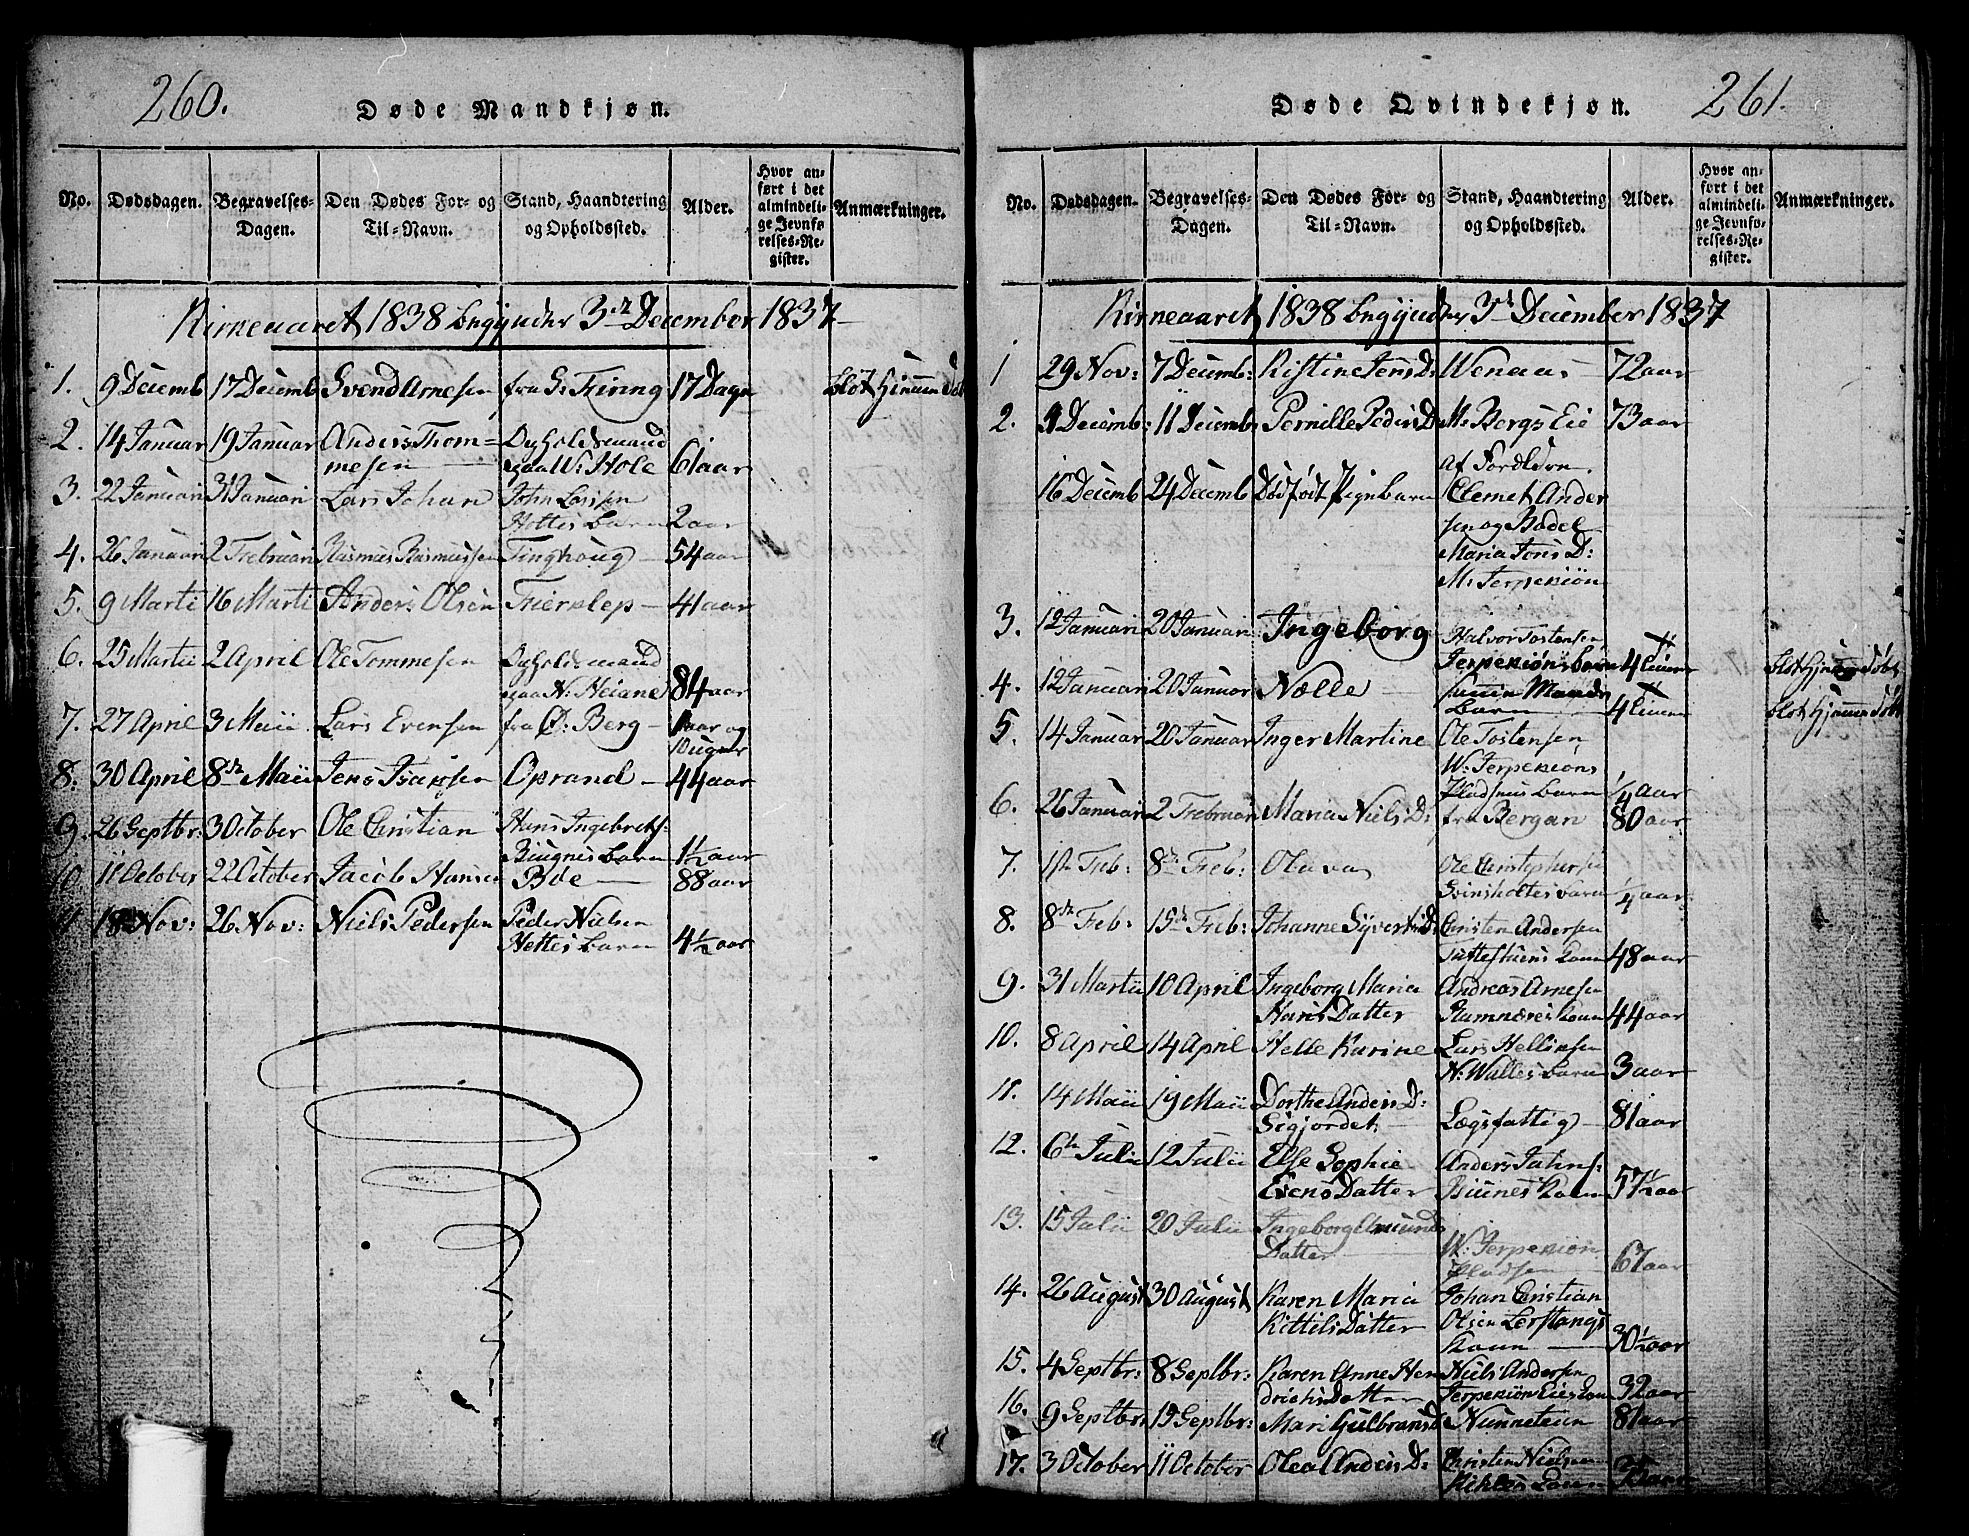 260.
Døde Mandkjøn.
No. Dødsdagen. Begravelses- Dagen. Den Dødes For- og Til-Navn. Stand, Haandtering og Opholdssted. Alder. Hvor anført i det almindelige Jevnførelses-Register. Anmærkninger.
Kirkeaaret 1838 begynder 3de December 1837
1. 9 Decemb 17 Decemb Svend Arnesen fra S: Fining 17 Dage
2. 14 Januar 19 Januar Anders Thom=
mesen Hole 61 aar
3. 22 Januari 31 Januari Lars Johan John
Hottes barn 2 aar
4. 26 Januari 2 Februari Rasmus Rasmussen Tinghoug 54 aar
5. 9 Marti 16 Marti Anders Olsen Fierklep 41 aar
6. 25 Martii 2 April Ole Tommesen
paa N: Heiane 84 aar
7. 27 April 3 Maii Lars Evensen fra Ø: Berg aar og
10 uger
8. 30 April 8de Maii Jens Isaksen Oprand 44 aar
9. 26 Septbr: 3 October Ole Christian Hans Ingebretss:
barn 1½ aar
10 11 October 22 October Jacob Hansen Bøe 88 aar
11 18 Nov: 26 Nov: Niels Pedersen Peder Nielsen
Hottes barn 4½ aar
261.
Døde Qvindekjøn.
No. Dødsdagen. Begravelses- Dagen. Den Dødes For- og Til-Navn. Stand, Haandtering og Opholdssted. Alder. Hvor anført i det almindelige Jevnførelses-Register. Anmærkninger.
Kirkeaaret 1838 begynder 3de December 1837
1 29 Nov: 7 Decemb: Kistine Jens D: Wenaas 72 aar
2. Decemb: 11 Decemb: Pernille Peders D M: Bergs Eie 73 aar
16 Decemb 24 Decemb Dødfødt Pigebarn Clemet Ander
sen og Bodel
Maria Jens D:
M: Jerpekiøn
3. 12 Januari 20 Januari Ingeborg Halvor Tostensen
Jerpekiøns barn 4
4. 12 Januari 20 Januar Nælle samme Mands
Barn 4
5. 14 Januar 20 Januar Inger Martine Ole Tostensen
W: Jerpekiøns
Pladsens barn ¼ aar
6. 26 Januari 2 Februar Maria Niels D: fra Bergan 80 aar
7. 1ste Feb: 8de Feb: Olava Ole Christophersen
¼ aar
8. 8de Feb: 15de Feb: Johanne Syverts D: Christen Andersen
48 aar
9. 31 Martii 10 April Ingeborg Maria Andreas Arnesen
Hans Datter kone 44 aar
10. 8 April 14 April Helle Karine Lars Helliksen
N: Walles barn 3 aar
11. 14 Maii 19 Maii Dorthe Anders D:
Sigjordet Lægsfattig 81 aar
12. 6te Julii 12 Julii Else Sophie Anders Jahns:
Evens Datter kone 57½ aar
13. 15 Julii 20 Julii Ingeborg Amunds
Datter W: Jerpekiøn
Pladsen 67 aar
14. 26 August 30 August Karen Maria Johan Christian
Kittels Datter Olsen Lerstangs
kone 30½ aar
15. 4 Septbr: 8 Septbr: Karen Anne Hen Niels Andersen
driks Datter Jerpekiøn Eies kone 32 aar
16. 9 Septbr: 15 Septbr: Mari Gulbransd Nunneteien 81 aar
17. 3 October 11 October Olea Anders D: Christen Nielsen